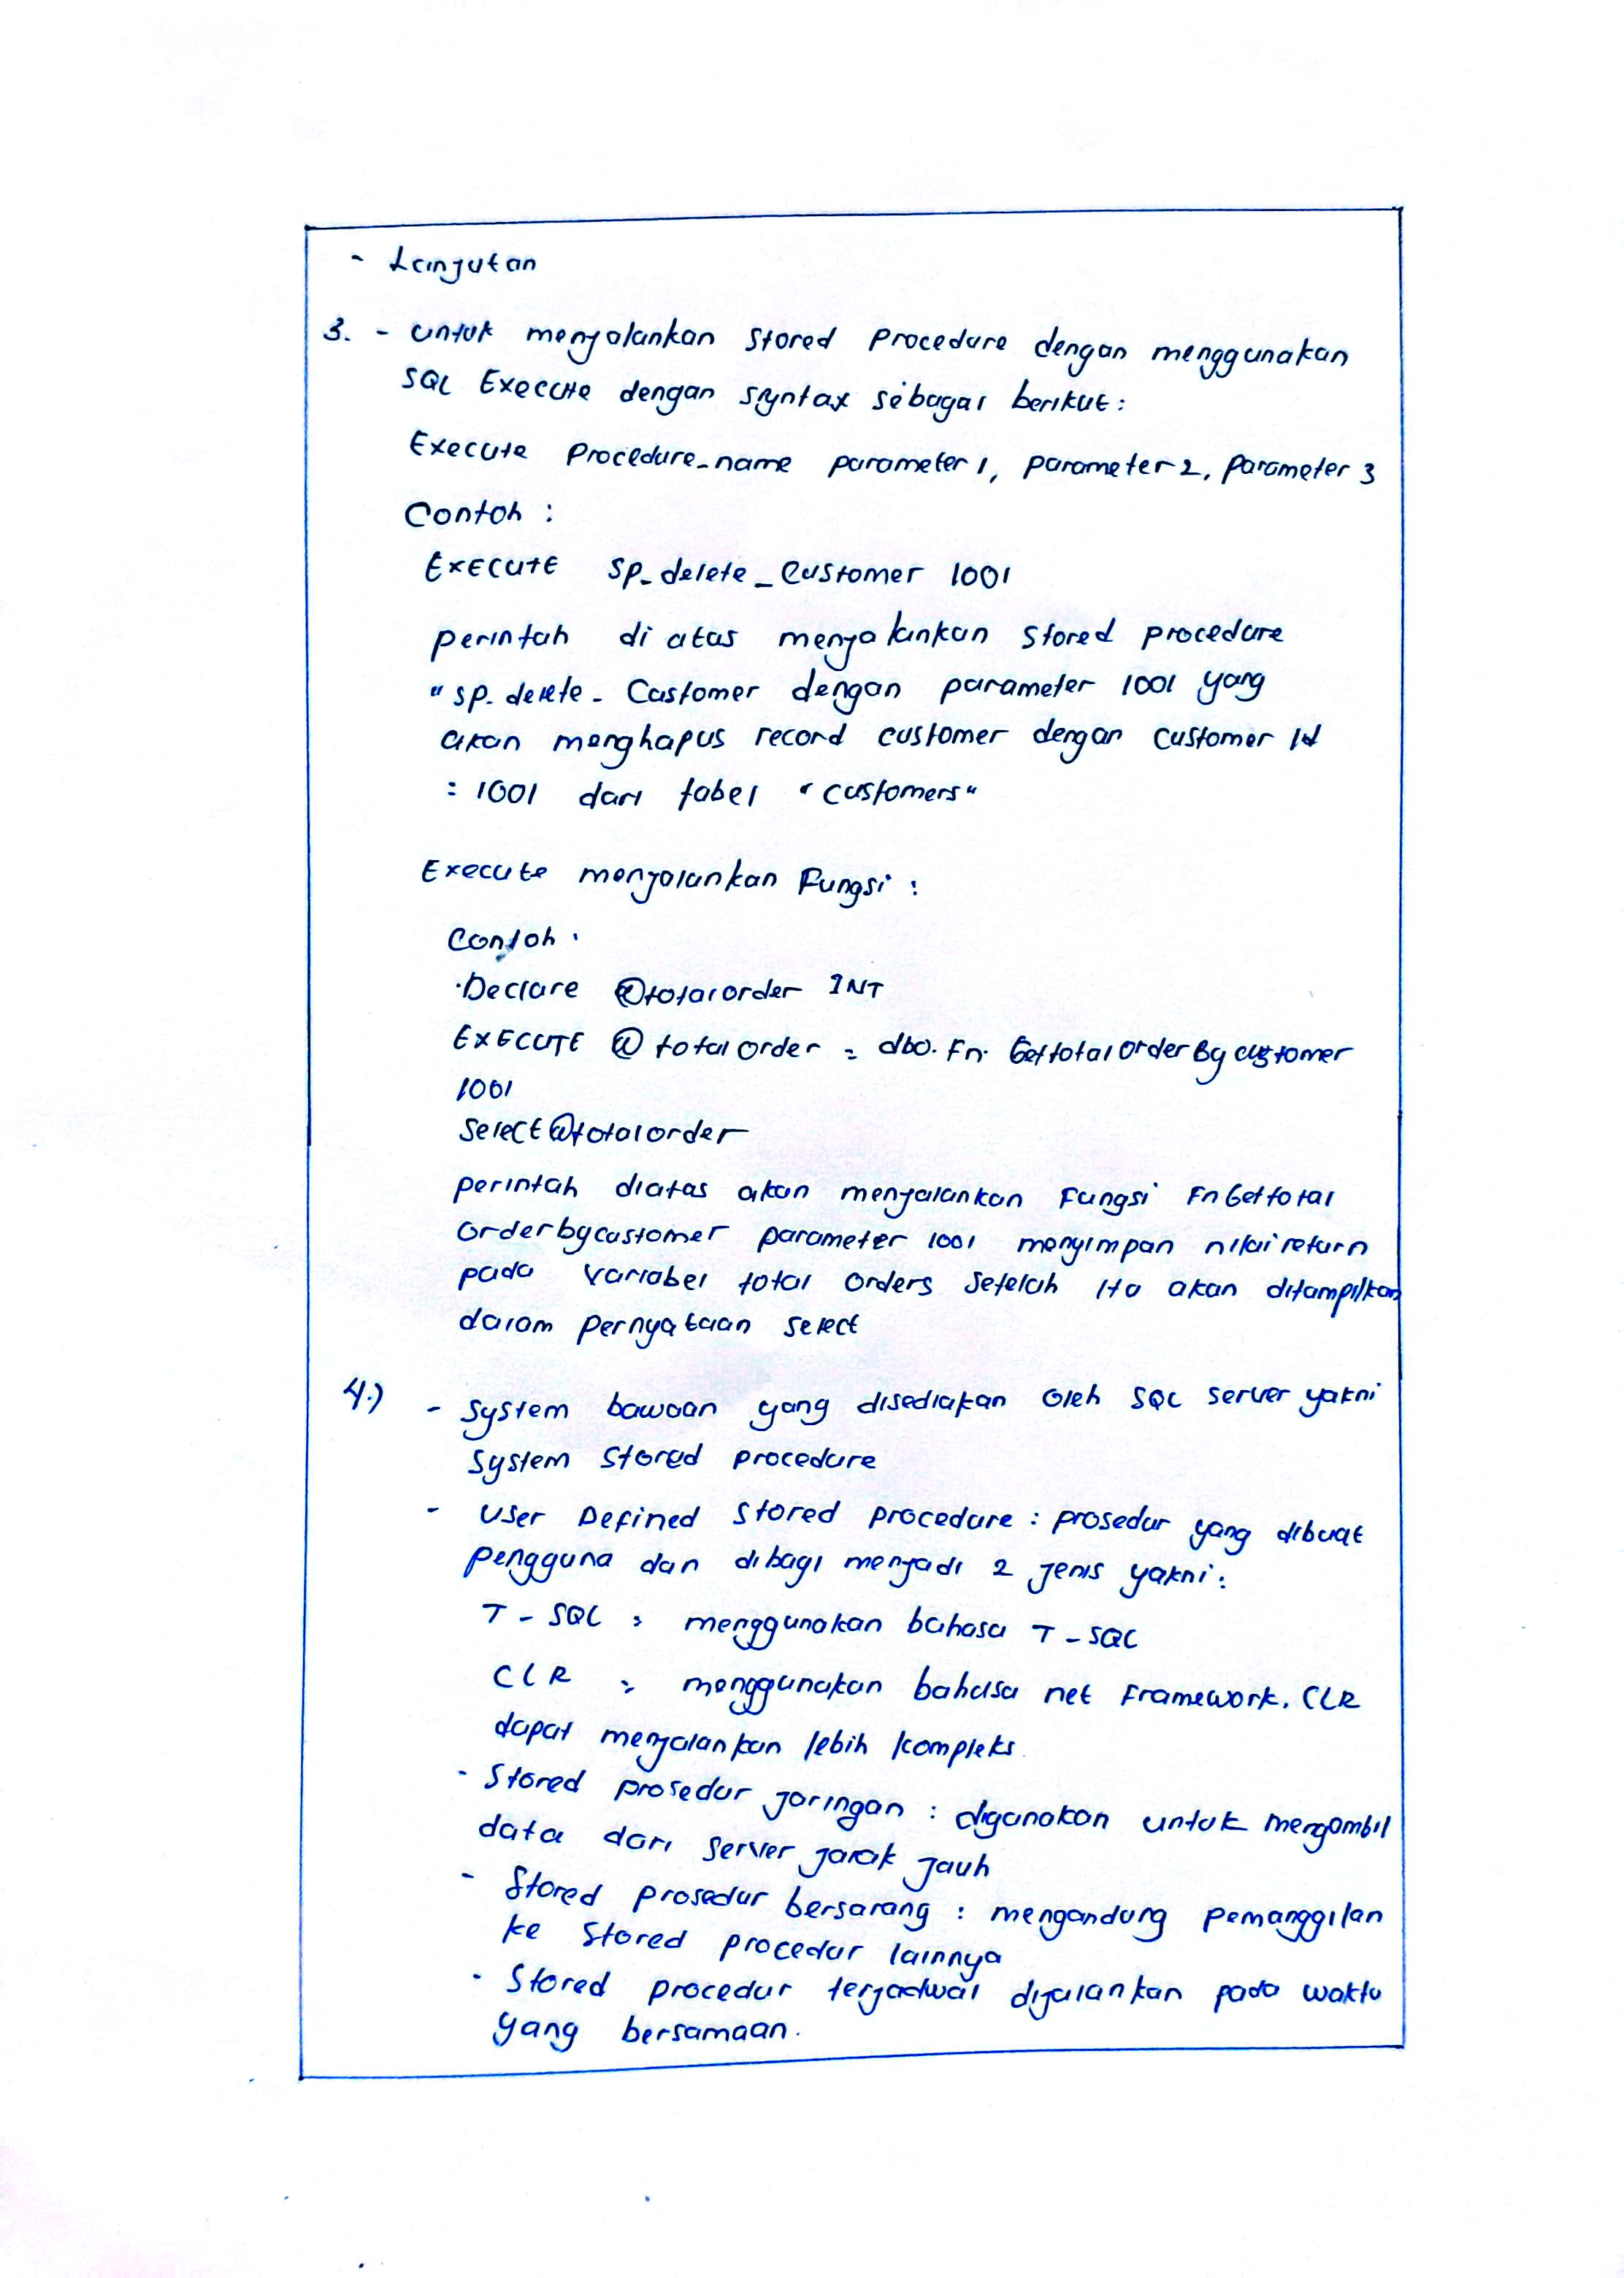 - Lanjutan
3. - untuk menjalankan stored Procedure dengan menggunakan
SQL Execute dengan syntax sebagai berikut:
Execute Procedure_name parameter 1, parameter 2, Parameter 3
Contoh :
EXECUTE sp_delete_customer 1001
perintah di atas menjalankan stored procedure
"sp_delete_Customer dengan parameter 1001 yang
akan menghapus record customer dengan customer Id
= 1001 dari tabel "customers"
Execute menjalankan Fungsi :
Contoh .
.Declare @totalorder INT
EXECUTE @totalorder = dbo.Fn.GettotalorderBycustomer
1001
Select@totalorder
perintah diatas akan menjalankan Fungsi FnGettotal
Orderbycustomer parameter 1001 menyimpan nilai return
pada variabel total orders setelah itu akan ditampilkan
dalam pernyataan select
4.) - System bawaan yang disediakan oleh SQL server yakni
System Stored procedure
- User Defined Stored procedure : prosedur yang dibuat
pengguna dan dibagi menjadi 2 jenis yakni :
T-SQL : menggunakan bahasa T-SQL
CLR : menggunakan bahasa net Framework. CLR
dapat menjalankan lebih kompleks.
- Stored prosedur jaringan : digunakan untuk mengambil
data dari server jarak jauh
- Stored prosedur bersarang : mengandung pemanggilan
ke Stored procedur lainnya
- Stored procedur terjadwal dijalankan pada waktu
yang bersamaan.